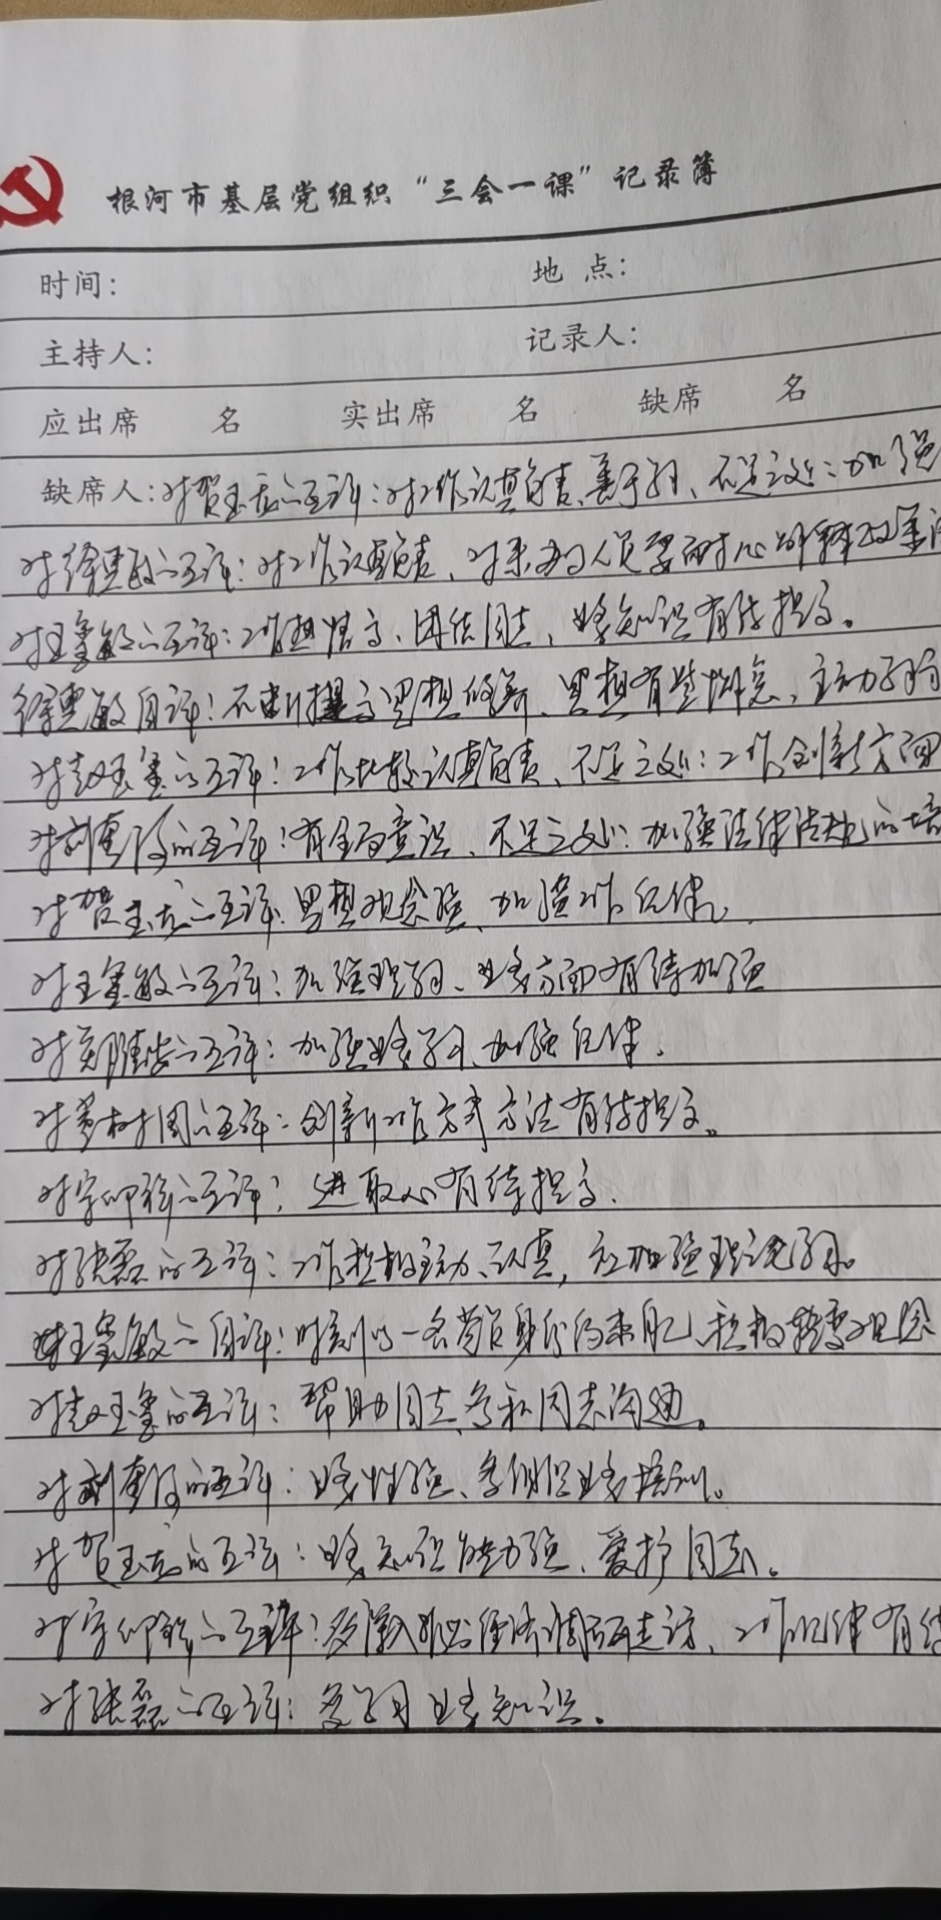 根河市基层党组织“三会一课”记录簿
时间: 地点:
主持人: 记录人:
应出席 名 实出席 名 缺席 名
缺席人:对贺玉志的互评:对工作认真负责、善于学习、不足之处:加强
对徐惠敏的互评:对工作认真负责、对来访人员要耐心的解释政策
对王玺敏的互评:工作热情高、团结同志、业务知识有待提高。
徐惠敏自评:不断提高思想的、思想有些懈怠、主动学习
对赵玉玺的互评:工作比较认真负责、不足之处:工作创新方面
对刘惠的互评:有全局意识、不足之处:加强法律法规的培
对贺玉志的互评:思想观念强、加强工作纪律。
对王玺敏的互评:加强理学习、业务方面有待加强
对的互评:加强业务学习、加强纪律。
对树国的互评:创新工作方式方法有待提高。
对的互评:进取心有待提高.
对张磊的互评:工作积极主动、认真,应加强理论学习。
王玺敏的自评:时刻以一名党员身份约束自己、积极转变观念
对赵玉玺的互评:帮助同志、多和同志沟通。
对刘惠的互评:业务性强、多组织业务培训。
对贺玉志的互评:业务知识能力强、爱护同志。
对的互评:多深入走访、工作纪律有待
对张磊的互评:多学习业务知识。